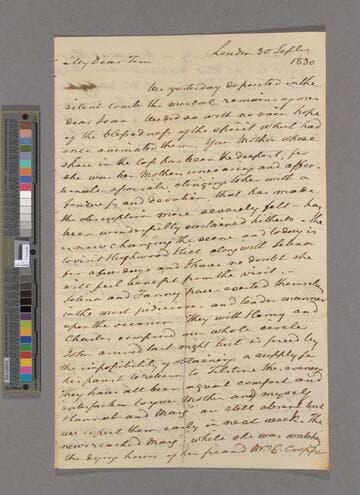 London 30 Septr
1830
My Dear Tom
We yesterday deposited in the
silent tomb the mortal remains of our
dear Joan. We did so with no vain hope
of the blessedness of the spirit which had
once animated them. Your Mother whose
share in the loss has been the deepest, for
she was her Mother's unceasing and affec-
tionate associate, clinging to her with a
tenderness and devotion, that has made
the disruption more severely felt - has
been wonderfully sustained hitherto. She
is now changing the scene and to day is
to visit Highwood Hill along with
for a few days and I have no doubt she
will feel benefit from the visit. -
and Fanny have exerted themselves
in the most judicious and tender manner
upon the occasion. They with Harry and
Charles compose our whole circle
John arrived last night but is forced by
the impossibility of obtaining a supply for
his to return to this evening
They have all been a great comfort and
satisfaction to your Mother and myself
Hannah and Marg are still absent but
we expect them early in next week. The
news reached Marg while she was watching
the dying hours of her friend Mrs E. Cropper